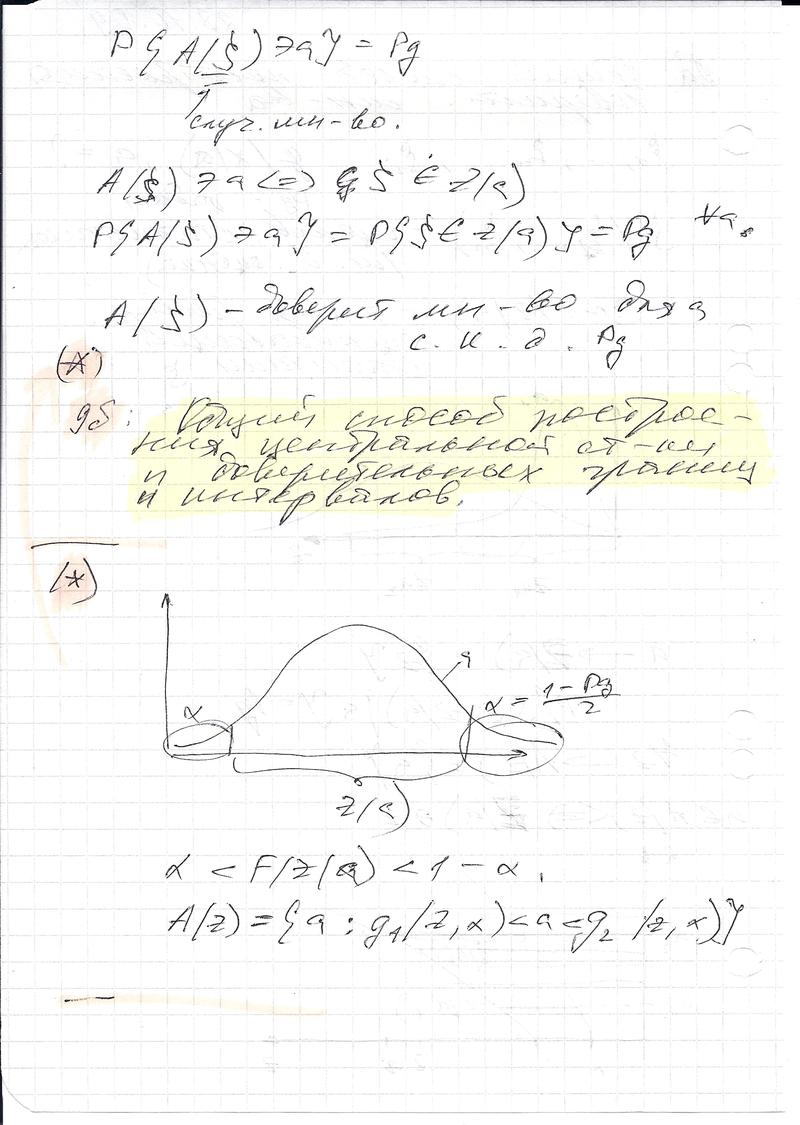 P{A(ξ) ∋ a} = Pg
случ. мн-во.
A(ξ) ∋ a <=> ξ ∈ Z(a)
P{A(ξ) ∋ a} = P{ξ ∈ Z(a)} = Pg ∀a.
A(ξ) – доверит мн-во для a
с. к. д. Pg
(*)
9б: Общий способ построе-
ния центральной ст-ки
и доверительных границ
и интервалов.
(*)
α
a
α = (1 - Pg)/2
Z(a)
α < F(z(a) < 1 - α.
A(z) = {a : g₁(z, α) < a < g₂(z, α)}